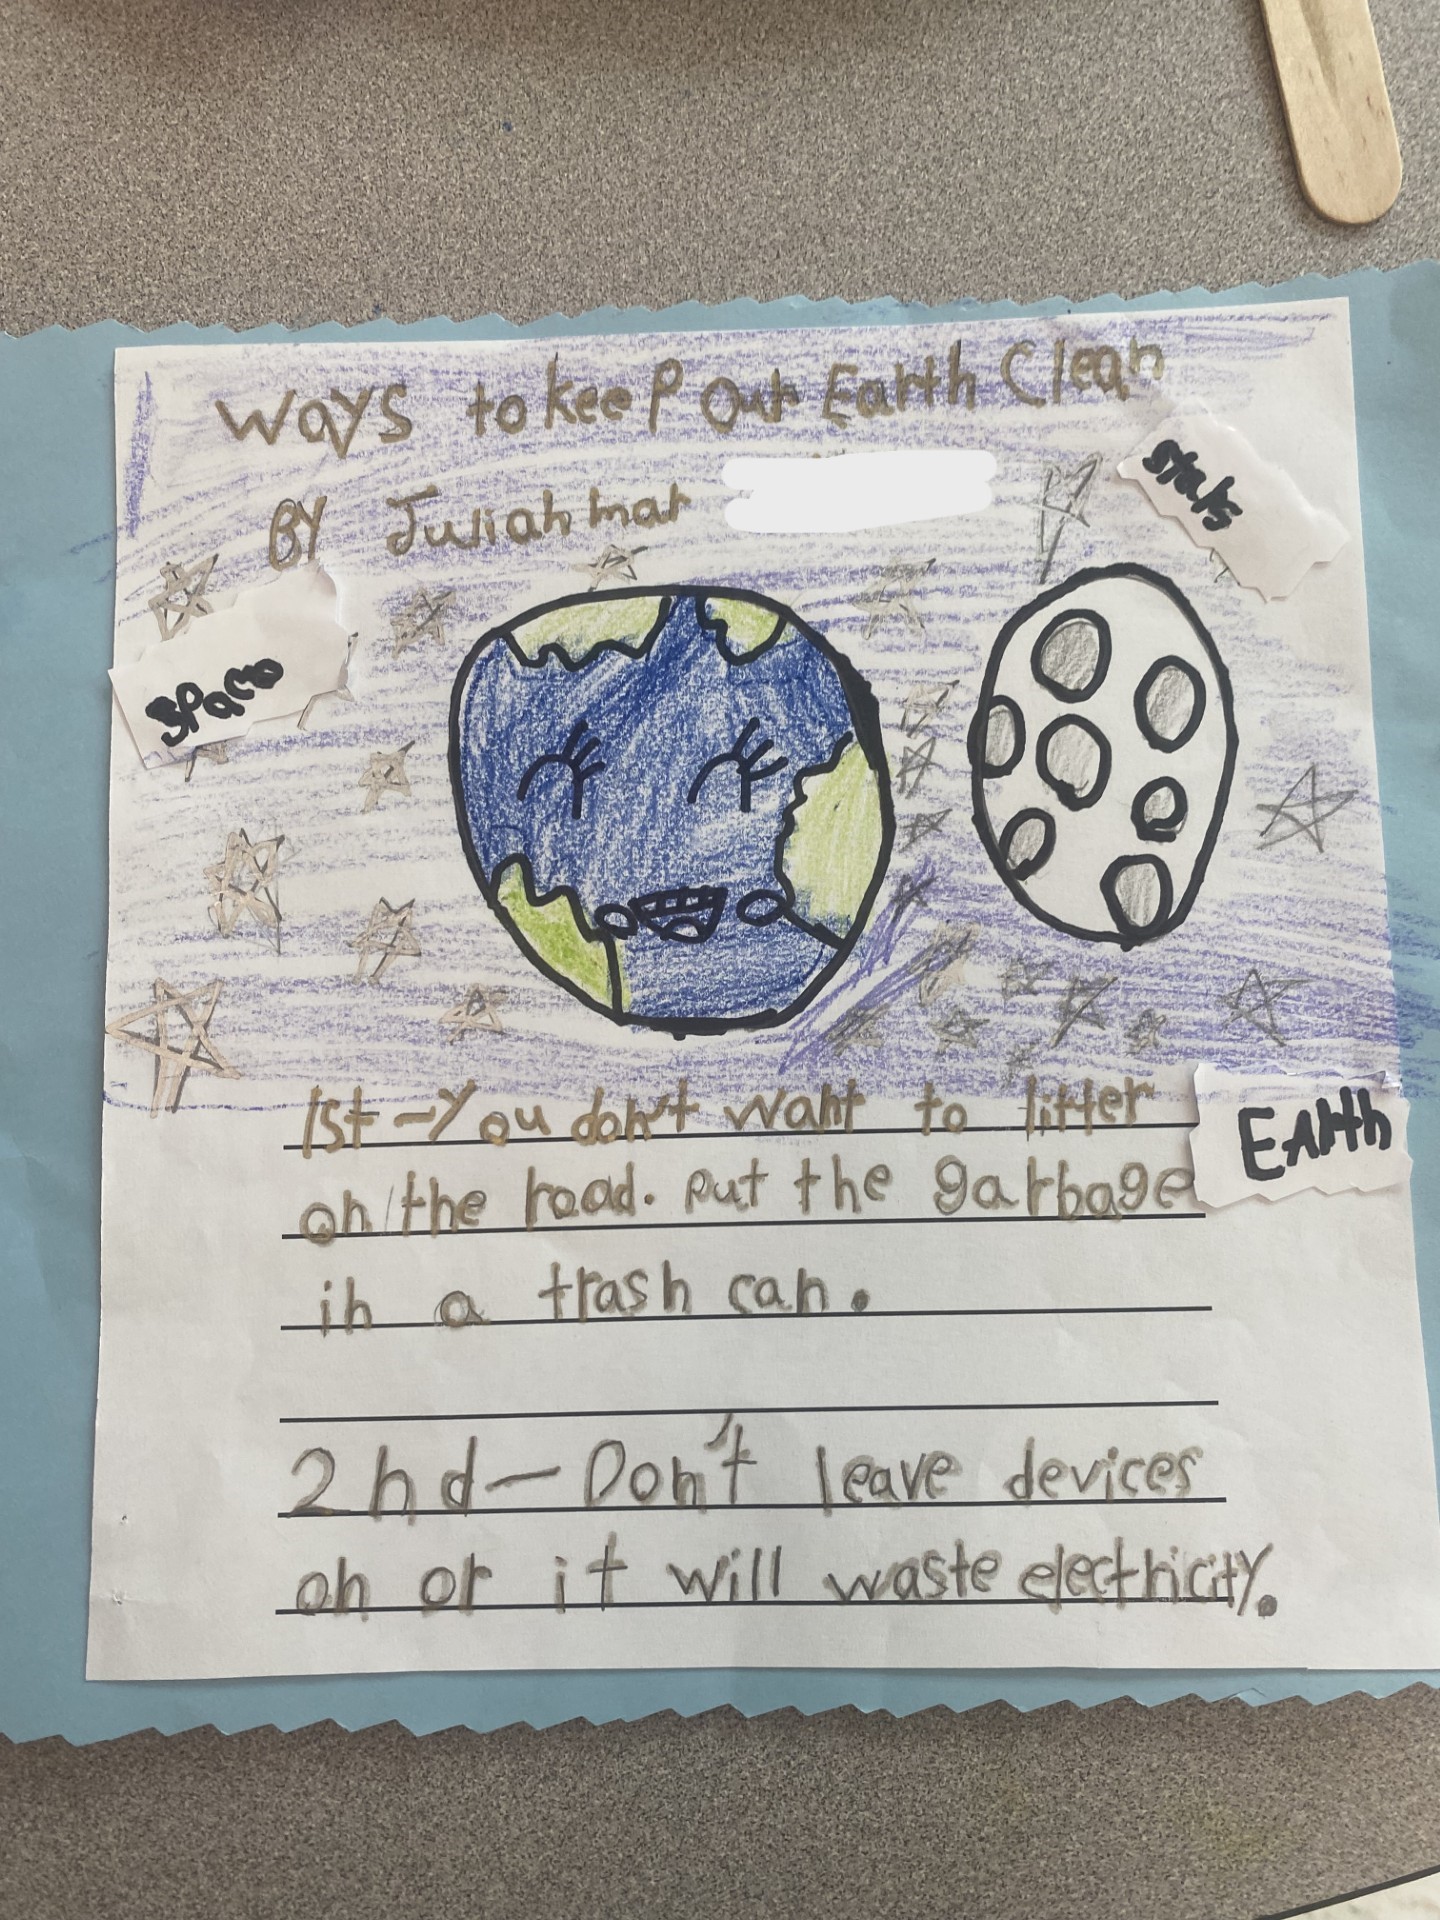 Ways to keep Our Earth Clean
BY Juliahmar
stars
space
1st - You don't want to litter
Earth
on the road. put the garbage
in a trash can.
2nd - Don't leave devices
on or it will waste electricity.